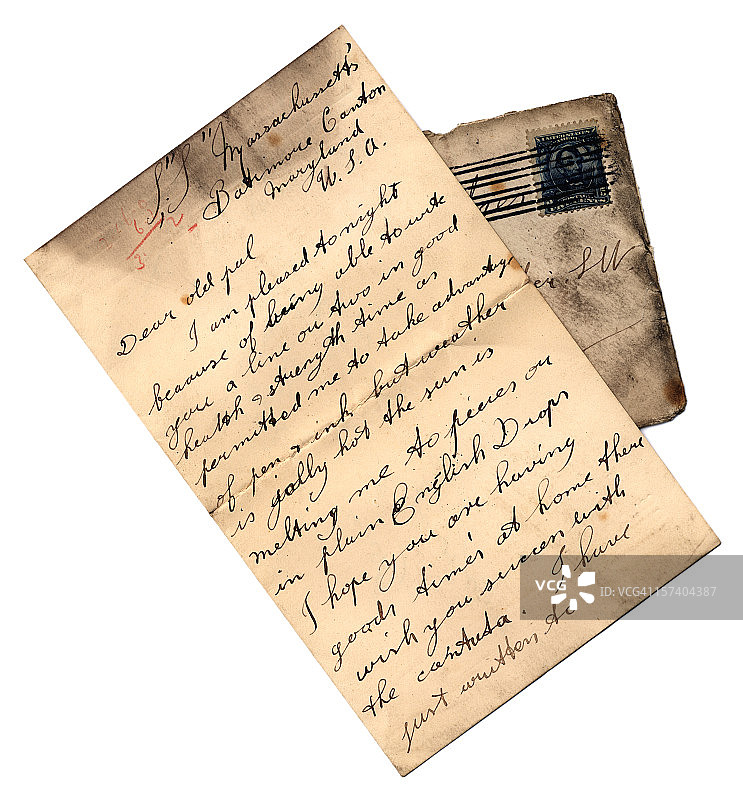 "S,S" Massachussett's
Baltimore Canton
Maryland
U.S.A.
Dear old pal
I am pleased to night
because of being able to write
you a line or two in good
health & strength time as
permitted me to take advantage
of pen & ink but weather
is jolly hot the sun is
melting me to pieces or
in plain English Drops
I hope you are having
goods time's at home there
wish you succes with
the cantata. I have
just written to
UNITED STATES
VCG
ID: VCG41157404387